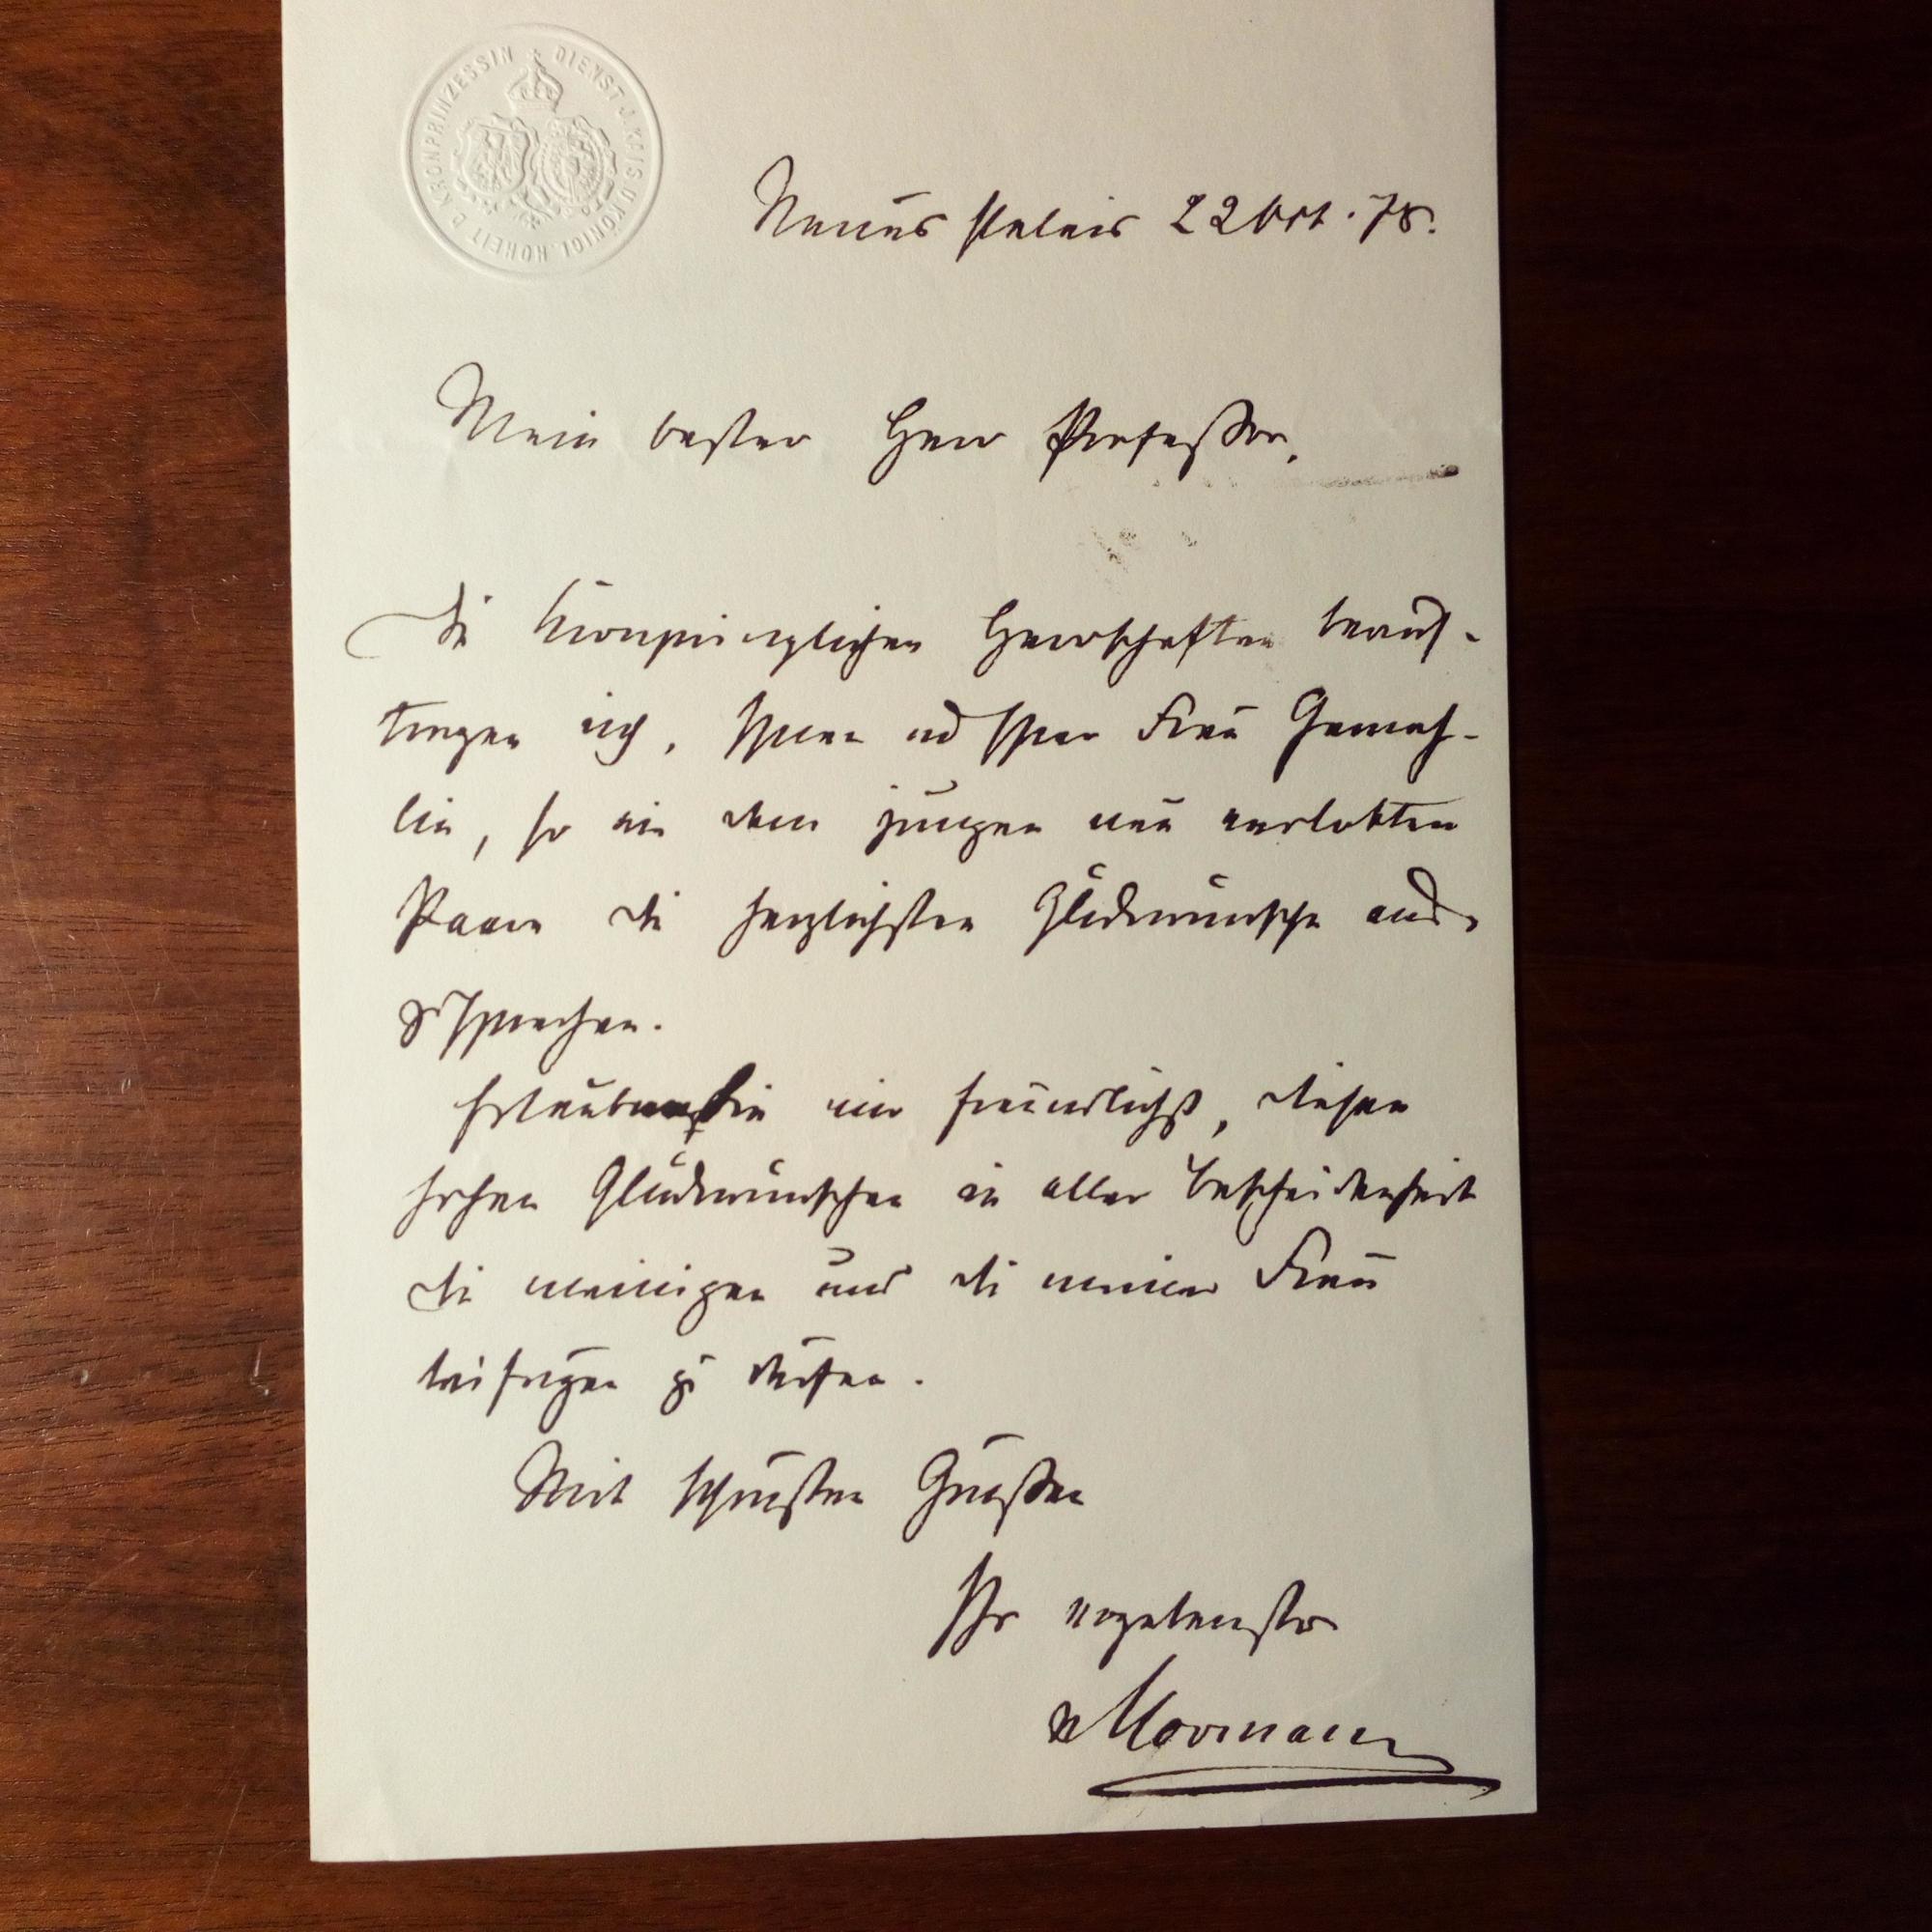 DIENST J. KAIS. U. KÖNIGL. HOHEIT D. KRONPRINZESSIN
Neues Palais 22 Oct. 78.
Mein bester Herr Professor,
Die kronprinzlichen Herrschaften beauf-
tragen mich, Ihnen und Ihrer Frau Gemah-
lin, so wie dem jungen neu verlobten
Paare die herzlichsten Glückwünsche aus-
zusprechen.
Erlauben Sie mir freundlichst, diesen
hohen Glückwünschen in aller Bescheidenheit
die meinigen und die meiner Frau
beifügen zu dürfen.
Mit schönsten Grüßen
Ihr ergebenster
v Normann